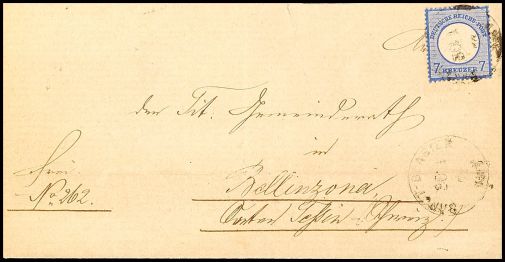 DEUTSCHE REICHS-POST
7 KREUZER 7
An
den Tit. Gemeinderath
in
Bellinzona
Canton Tessin - Schweiz
frei
No. 262.